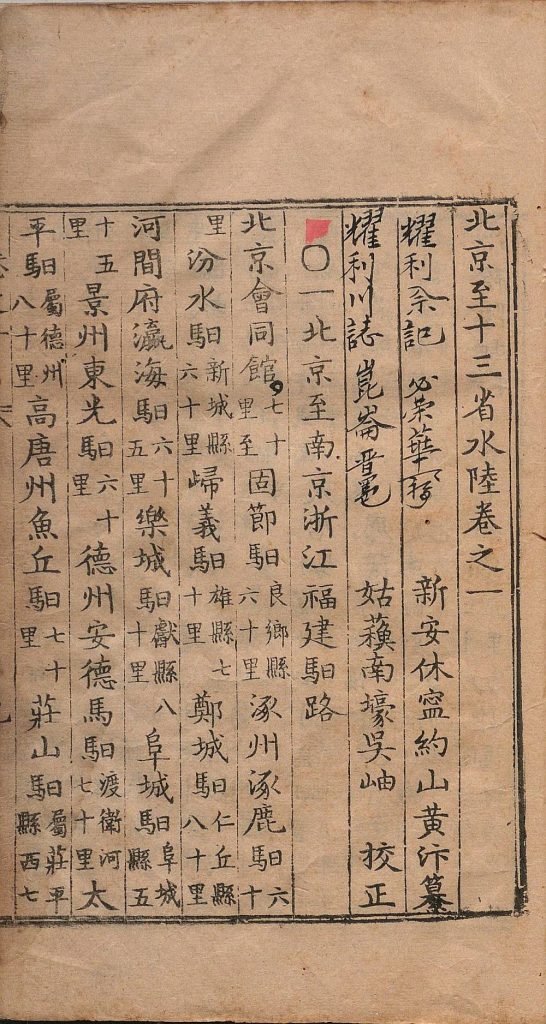 北京至十三省水陸卷之一
耀利 記 榮華 新安休寍約山黃汴纂
耀利川誌 崑崙 姑蘓南壕吳岫 挍正
〇一北京至南京浙江福建馹路
北京會同館七十里至固節馹良鄉縣六十里涿州涿鹿馹六十
里汾水馹新城縣六十里歸義馹雄縣七十里鄭城馹仁丘縣八十里
河間府瀛海馹六十五里樂城馹獻縣八十里阜城馹阜城縣五
十五里景州東光馹六十里德州安德馬馹渡衛河七十里太
平馹屬德州八十里高唐州魚丘馹七十里莊山馹屬莊平縣西七